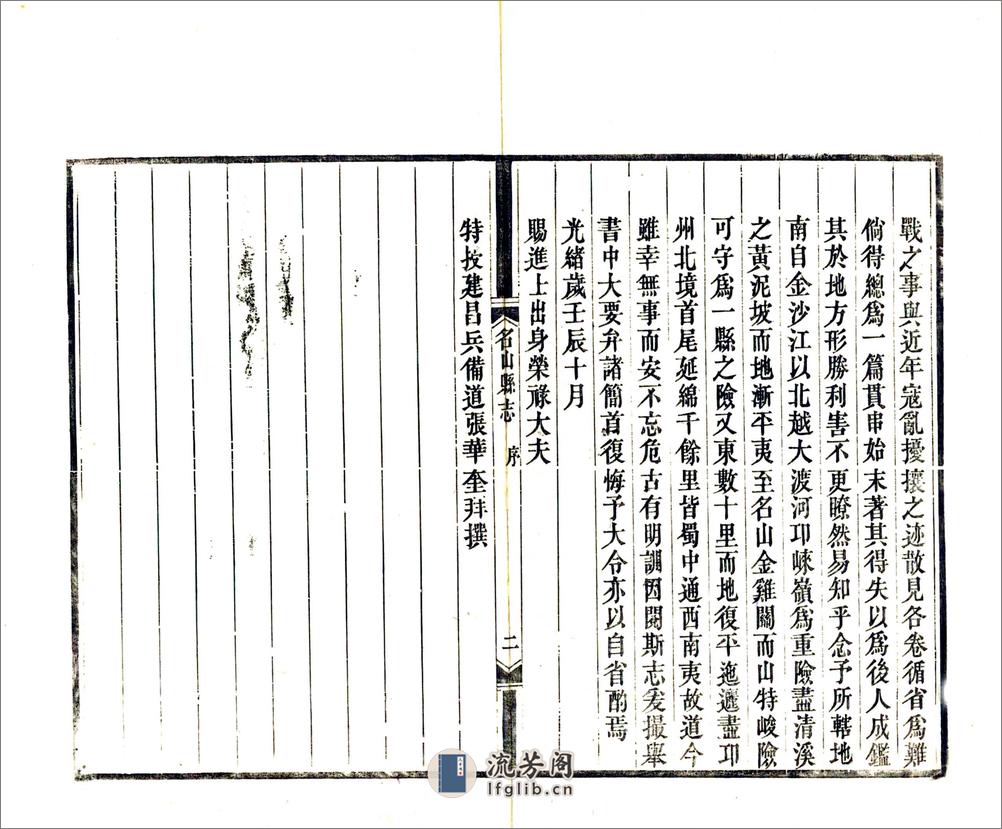 戰之事與近年寇亂擾攘之迹散見各卷循省爲難
倘得總爲一篇貫串始末著其得失以爲後人成鑑
其於地方形勝利害不更瞭然易知乎念予所轄地
南自金沙江以北越大渡河邛崍嶺爲重險盡清溪
之黃泥坡而地漸平夷至名山金雞關而山特峻險
可守爲一縣之險又東數十里而地復平迤邐盡邛
州北境首尾延綿千餘里皆蜀中通西南夷故道今
雖幸無事而安不忘危古有明訓因閱斯志爰撮舉
書中大要弁諸簡首復悔予大令亦以自省酌焉
光緒歲壬辰十月
賜進士出身榮祿大夫
名山縣志
序
二
特授建昌兵備道張華奎拜撰
流芳阁
lfglib.cn